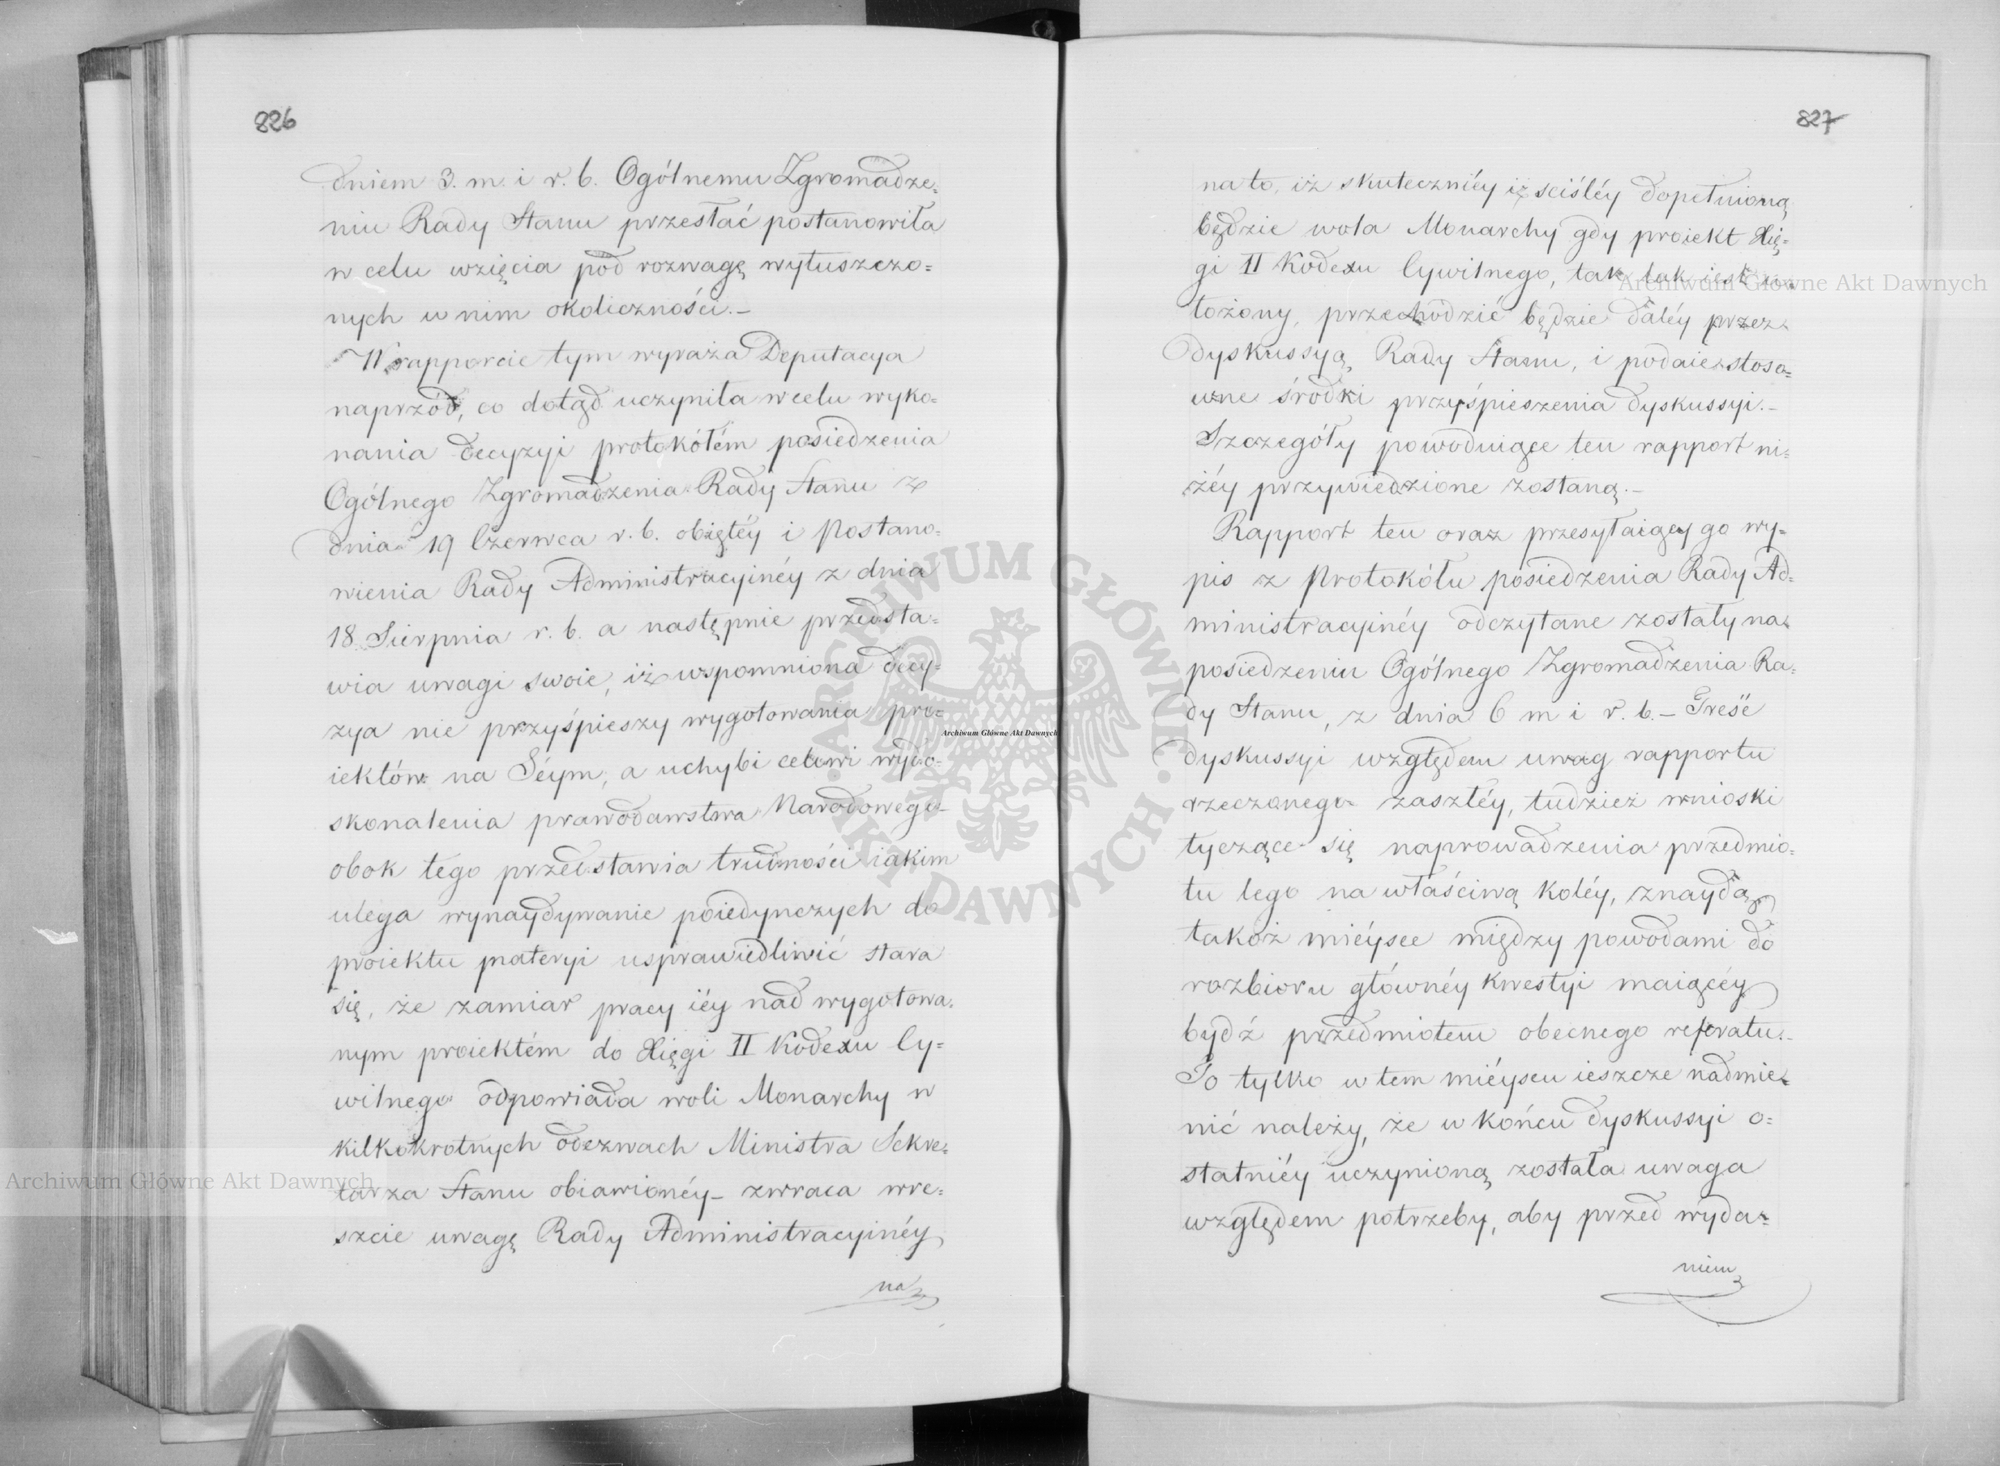 826
dniem 3. m. i r. b. Ogólnemu Zgromadze=
niu Rady Stanu przesłać postanowiła
w celu wzięcia pod rozwagę wyłuszczo=
nych w nim okoliczności.–
W rapporcie tym wyraża Deputacya
naprzód, co dotąd uczyniła w celu wyko=
nania decyzyi protokółém posiedzenia
Ogólnego Zgromadzenia Rady Stanu z
dnia 19 Czerwca r. b. obiętéy i Postano=
wienia Rady Administracyinéy z dnia
18 Sierpnia r. b. a następnie przedsta=
wia uwagi swoie, iż wspomniona decy=
zya nie przyśpieszy wygotowania pro=
iektów na Séym, a uchybi celowi wydo=
skonalenia prawodawstwa Narodowego–
obok tego przedstawia trudności iakim
ulega wynaydywanie poiedynczych do
proiektu materyi usprawiedliwić stara
się, że zamiar pracy iéy nad wygotowa=
nym proiektém do Xięgi II Kodexu Cy=
wilnego odpowiada woli Monarchy w
kilkokrotnych odezwach Ministra Sekre=
tarza Stanu obiawionéy– zwraca wre=
szcie uwagę Rady Administracyinéy
na
827
na to, iż skuteczniéy iż sciśléy dopełnioną
będzie wola Monarchy gdy proiekt Xię=
gi II Kodexu Cywilnego, tak iak iest u=
łożony, przechodzić będzie daléy przez
dyskussyą Rady Stanu, i podaie stoso=
wne środki przyśpieszenia dyskussyi.–
Szczegóły powoduiące ten rapport ni=
żéy przywiedzione zostaną.–
Rapport ten oraz przesyłaiący go wy=
pis z Protokółu posiedzenia Rady Ad=
ministracyinéy odczytane zostały na
posiedzeniu Ogólnego Zgromadzenia Ra=
dy Stanu, z dnia 6 m i r. b.– Treść
dyskussyi względem uwag rapportu
rzeczonego zaszłéy, tudzież wnioski
tyczące się naprowadzenia przedmio=
tu tego na właściwą koléy, znaydą
takoż mieysce między powodami do
rozbioru głównéy kwestyi maiącéy
bydź przedmiotem obecnego referatu.–
To tylko w tem miéyscu ieszcze nadmie=
nić należy, że w końcu dyskussyi o=
statniéy uczynioną została uwaga
względem potrzeby, aby przed wyda=
niem
Archiwum Główne Akt Dawnych
Archiwum Główne Akt Dawnych
Archiwum Główne Akt Dawnych
ARCHIWUM GŁÓWNE
AKT DAWNYCH